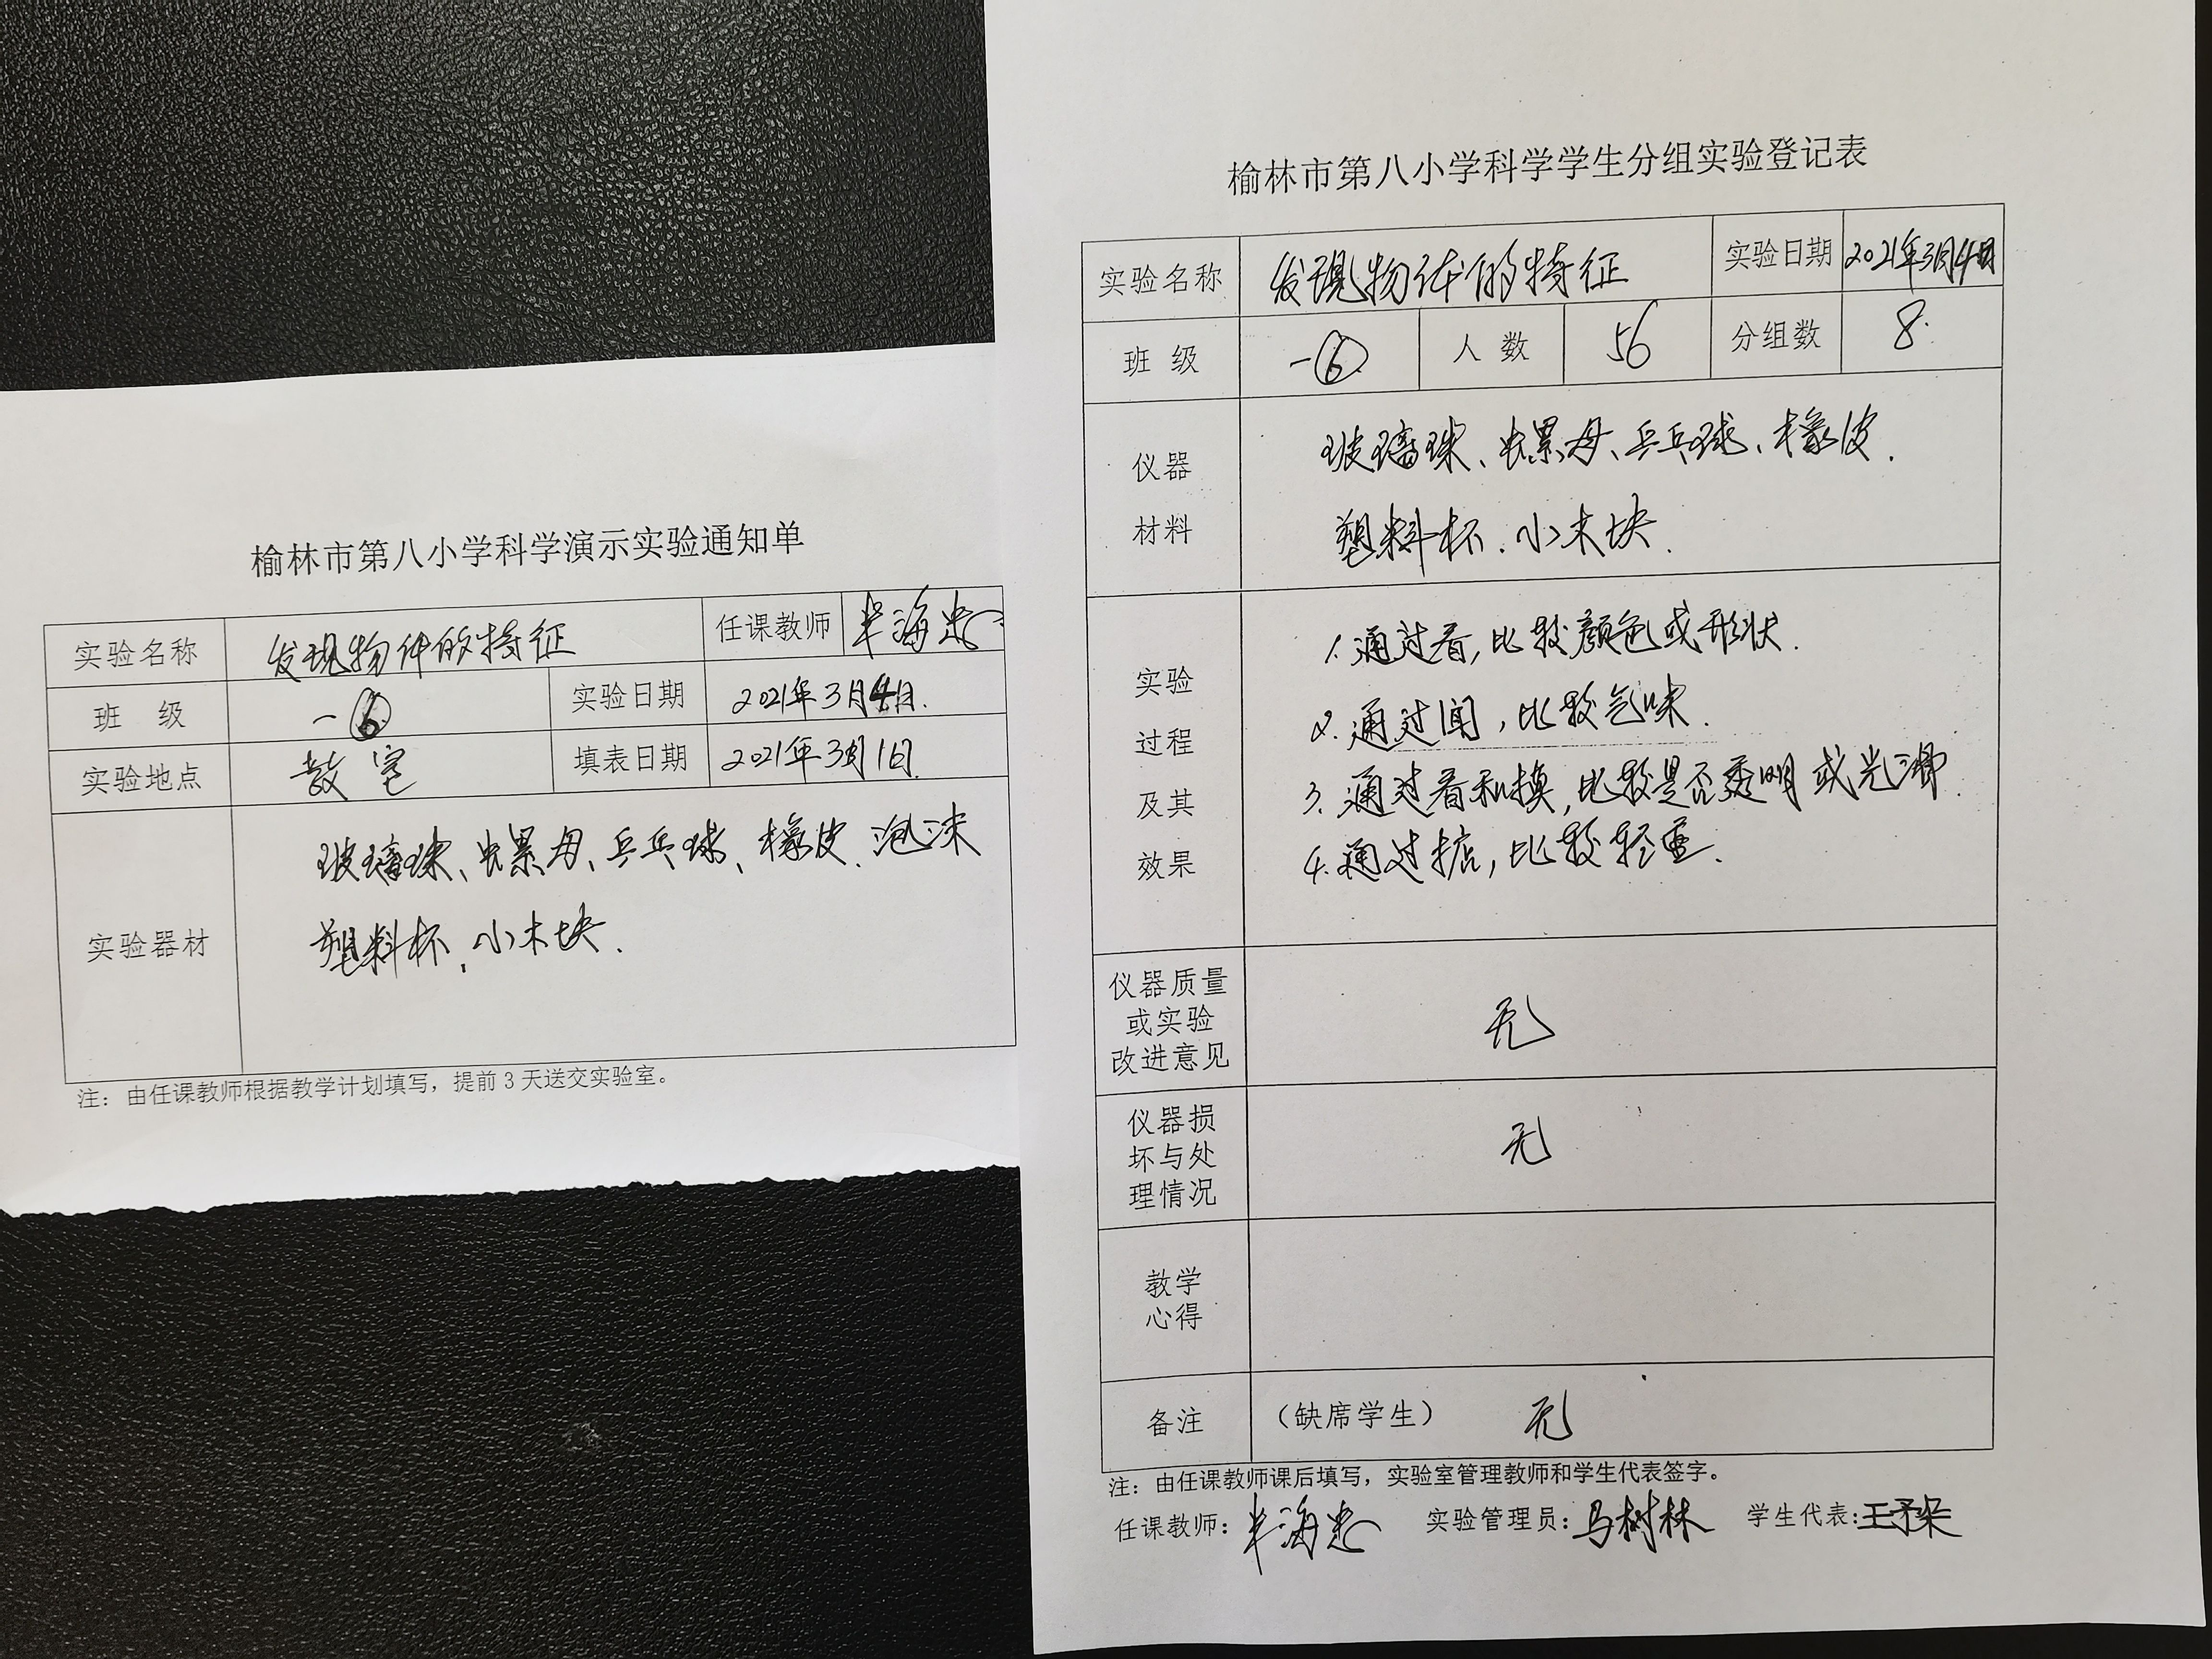 榆林市第八小学科学演示实验通知单
实验名称 发现物体的特征 任课教师
班 级 一⑥ 实验日期 2021年3月4日.
实验地点 教室 填表日期 2021年3月1日.
玻璃球、螺母、乒乓球、橡皮.泡沫
实验器材
塑料杯、小木块.
注：由任课教师根据教学计划填写，提前3天送交实验室。
榆林市第八小学科学学生分组实验登记表
实验名称 发现物体的特征 实验日期 2021年3月4日
班 级 一⑥ 人 数 56 分组数 8.
仪器 玻璃球、螺母、乒乓球、橡皮.
材料 塑料杯.小木块.
1.通过看,比较颜色或形状.
实验
2.通过闻,比较气味.
过程
3.通过看和摸,比较是否透明或光滑.
及其
4.通过掂,比较轻重.
效果
仪器质量
或实验 无
改进意见
仪器损
坏与处 无
理情况
教学
心得
备注 （缺席学生） 无
注：由任课教师课后填写，实验室管理教师和学生代表签字。
任课教师: 实验管理员:马树林 学生代表: